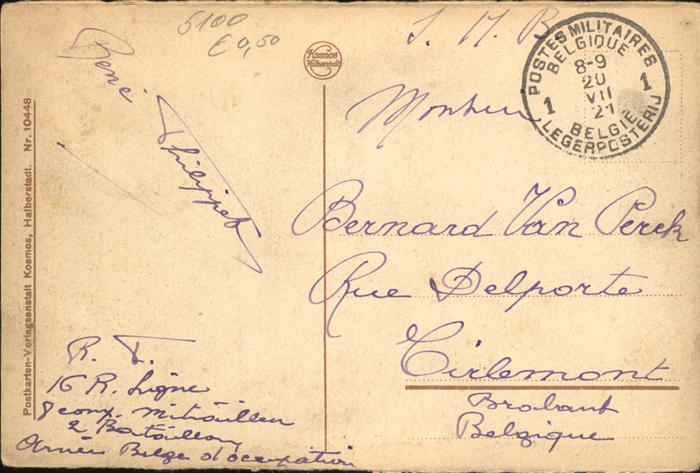 5100
€ 0,50
René
Philippet
R. P.
16 R. Ligne
8 comp. Mitrailleu
2 Bataillon
Armée Belge d'occupation
Kosmos
Halberstadt
Postkarten-Verlagsanstalt Kosmos, Halberstadt. Nr. 10448
S. M. B
POSTES MILITAIRES
BELGIQUE
1 1
8-9
20
VII
21
BELGIE
LEGERPOSTERIJ
Monsieur
Bernard Van Perck
Rue Delporte
Tirlemont
Brabant
Belgique